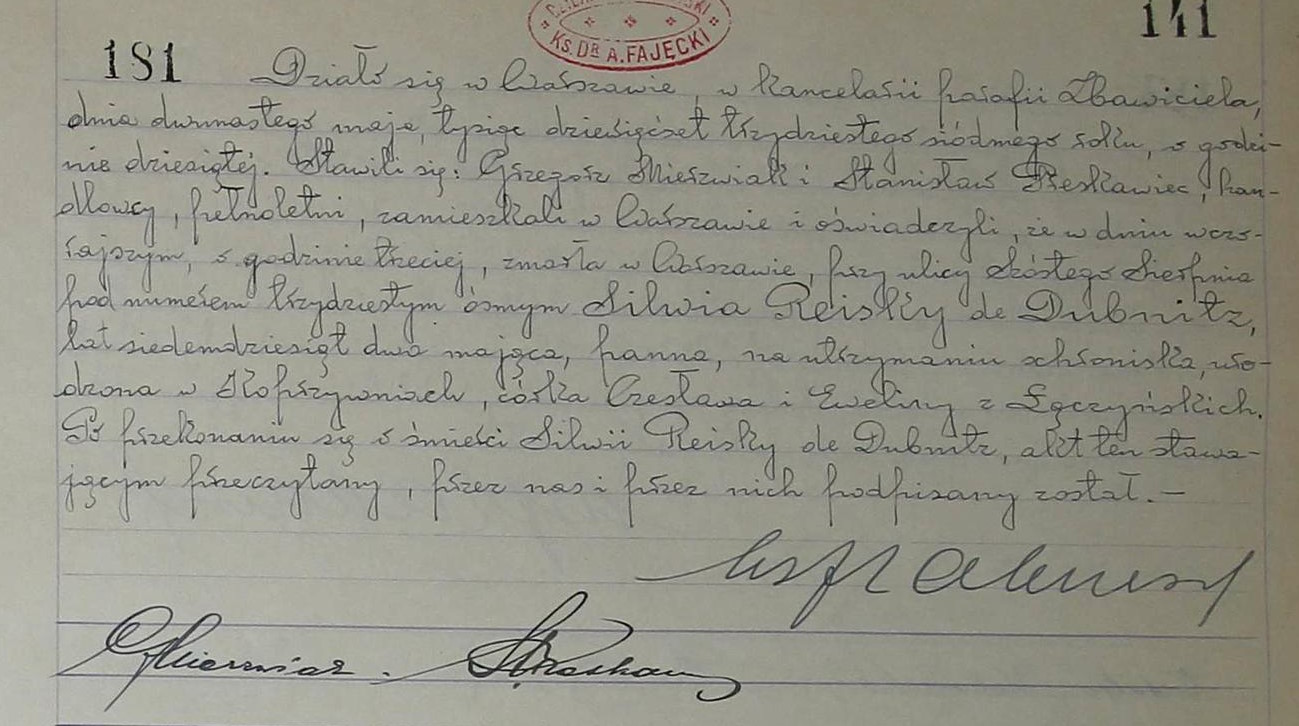 KS. DR A. FAJĘCKI
141
181 Działo się w Warszawie, w kancelarii parafii Zbawiciela,
dnia dwunastego maja, tysiąc dziewięćset trzydziestego siódmego roku, o godzi-
nie dziesiątej. Stawili się: Grzegorz i Stanisław, han-
dlowcy, pełnoletni, zamieszkali w Warszawie i oświadczyli, że w dniu wczo-
rajszym, o godzinie trzeciej, zmarła w Warszawie, przy ulicy Szóstego Sierpnia
pod numerem trzydziestym ósmym Silwia Reisky de Dubnitz,
lat siedemdziesiąt dwa mająca, panna, na utrzymaniu schroniska, uro-
dzona w, córka Czesława i Eweliny z Łączyńskich.
Po przekonaniu się o śmierci Silwii Reisky de Dubnitz, akt ten stawa-
jącym przeczytany, przez nas i przez nich podpisany został. —